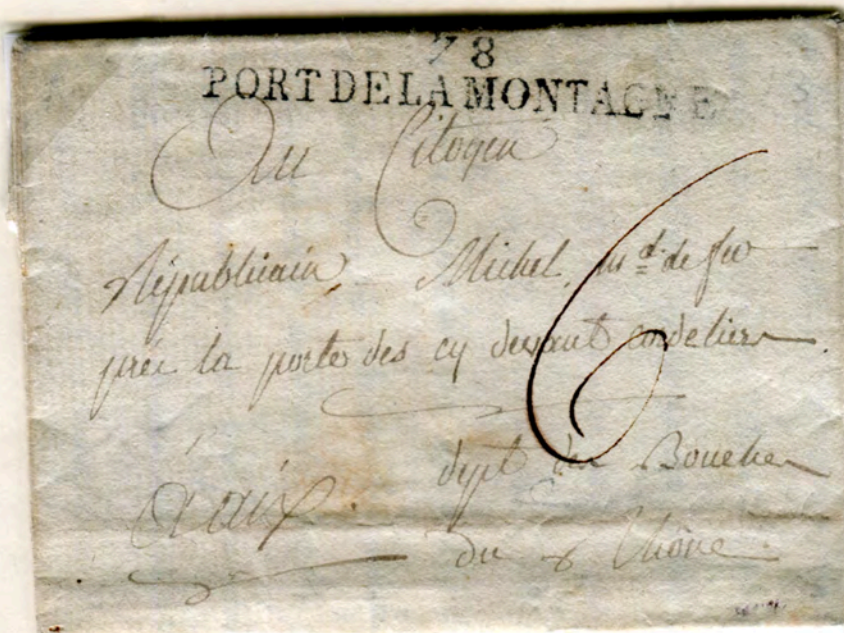 78
PORT DE LA MONTAGNE
Au Citoyen
Républicain Michel, md. de fer
près la porte des cy devant cordeliers
6
à aix dept des Bouches
du Rhône